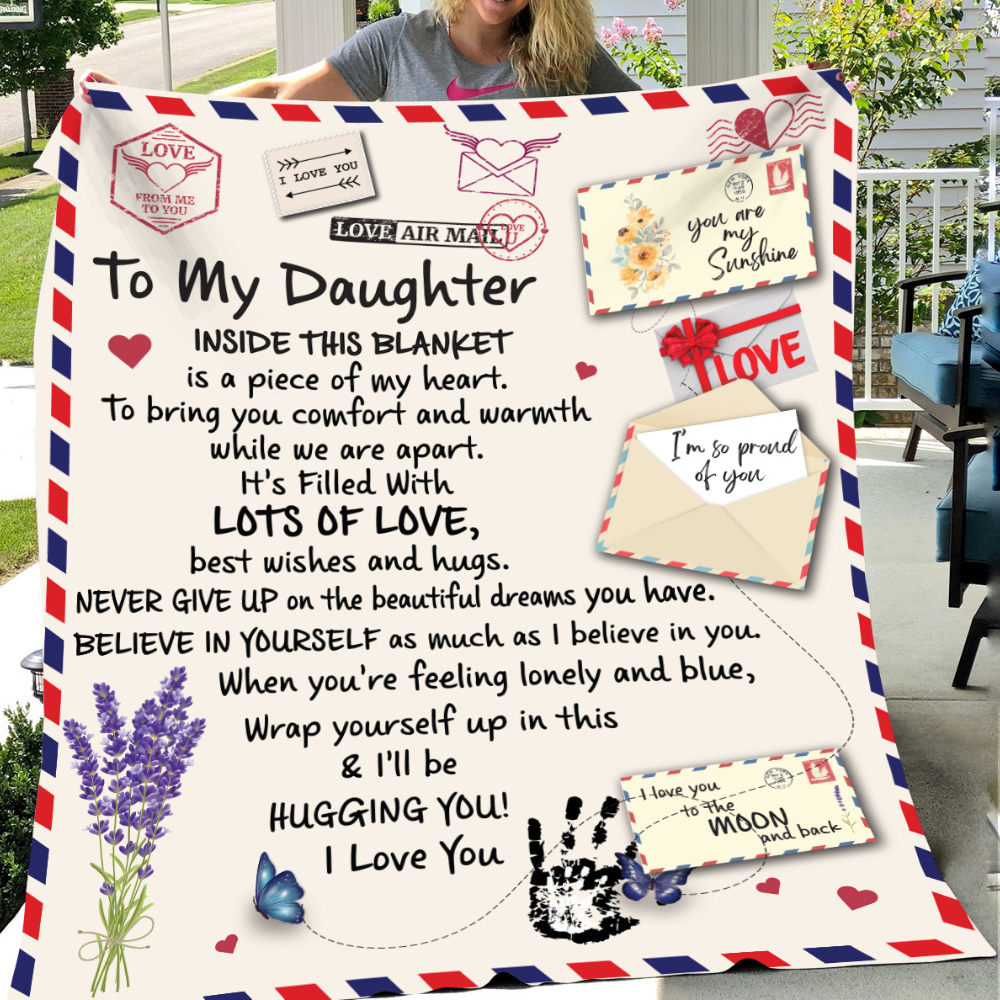 LOVE
FROM ME
TO YOU
I LOVE YOU
LOVE AIR MAIL
LOVE
U
NEW YORK
N.Y.
you are
my
Sunshine
To My Daughter
INSIDE THIS BLANKET
is a piece of my heart.
To bring you comfort and warmth
while we are apart.
It's Filled With
LOTS OF LOVE,
best wishes and hugs.
NEVER GIVE UP on the beautiful dreams you have.
BELIEVE IN YOURSELF as much as I believe in you.
When you're feeling lonely and blue,
Wrap yourself up in this
& I'll be
HUGGING YOU!
I Love You
LOVE
I'm so proud
of you
I love you
to the
MOON
and back